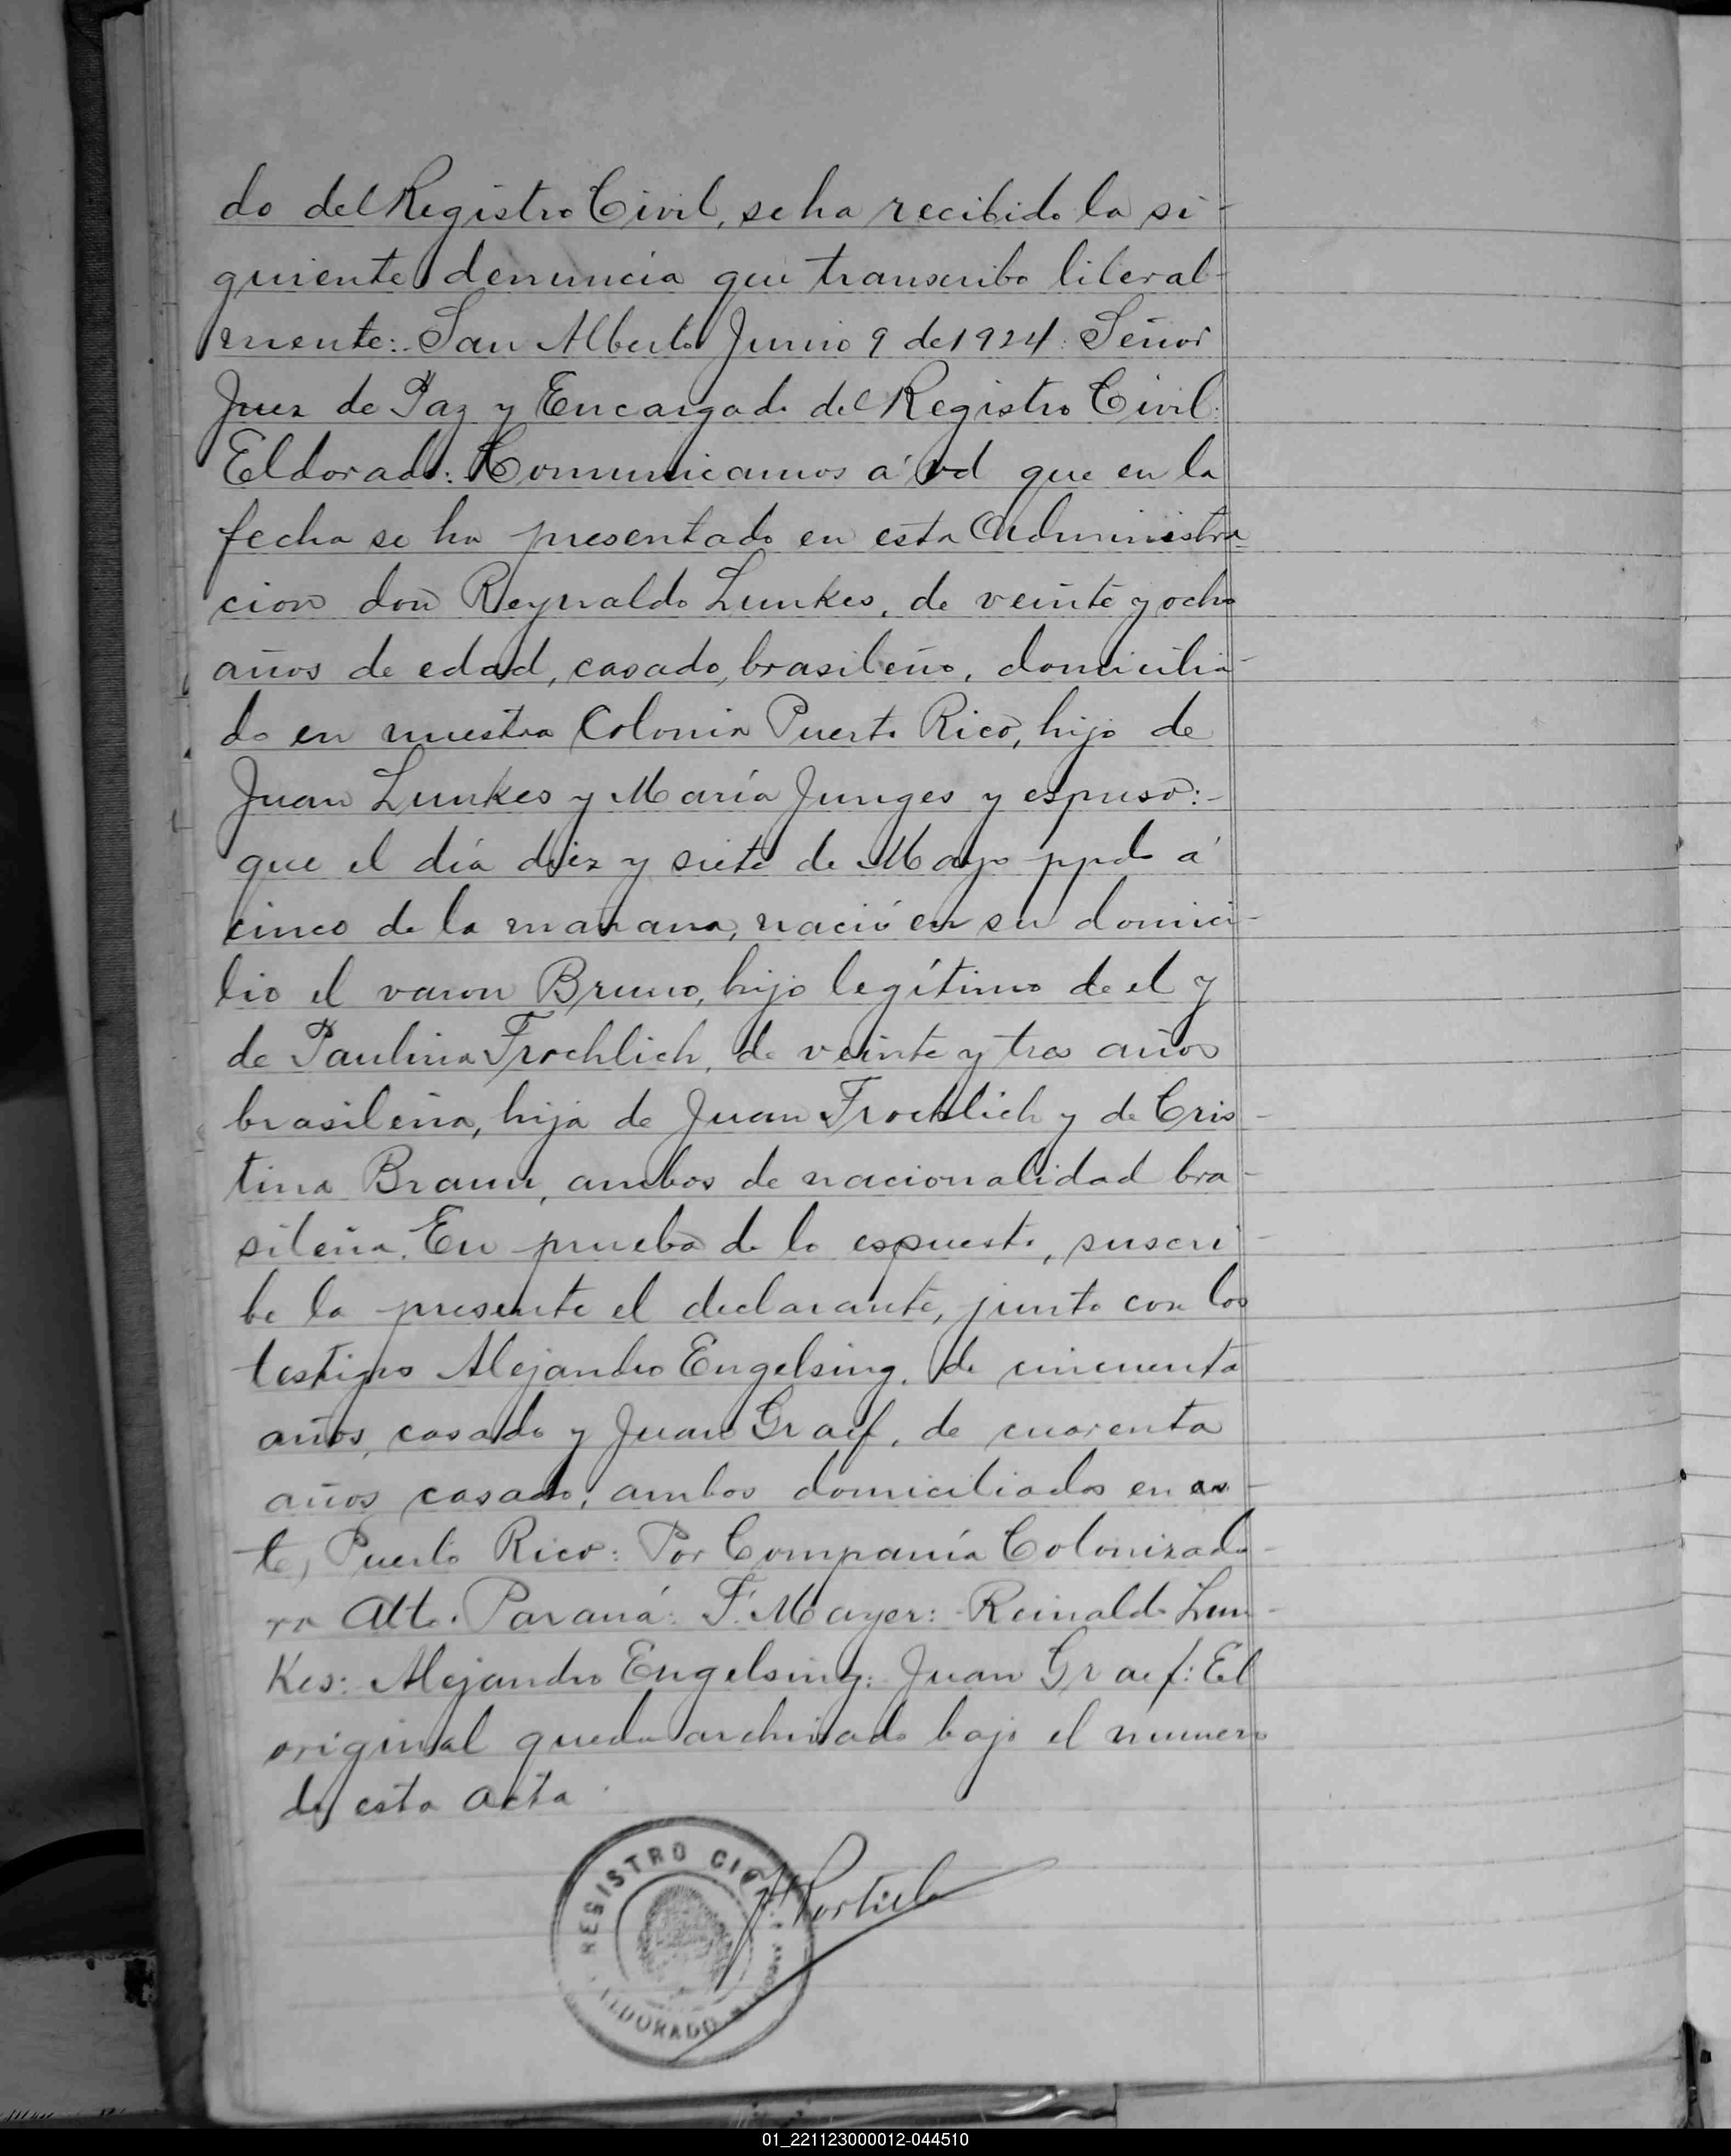 do del Registro Civil, se ha recibido la si-
guiente denuncia que transcribo literal-
mente:- San Alberto Junio 9 de 1924: Señor
Juez de Paz y Encargado del Registro Civil:
Eldorado: Comunicamos á vd que en la
fecha se ha presentado en esta Administra
cion don Reynaldo Lunkes, de veinte y ocho
años de edad, casado, brasileño, domicilia-
do en nuestra Colonia Puerto Rico, hijo de
Juan Lunkes y María Junges y espuso:-
que el día diez y siete de Mayo ppdo á
cinco de la mañana, nació en su domici-
lio el varon Bruno, hijo legítimo de el y
de Paulina Froehlich, de veinte y tres años
brasileña, hija de Juan Froehlich y de Cris-
tina Braun, ambos de nacionalidad bra-
sileña. En prueba de lo espuesto, suscri-
be la presente el declarante, junto con los
testigos Alejandro Engelsing, de cincuenta
años, casado y Juan Graef, de cuarenta
años, casado, ambos domiciliados en es-
te, Puerto Rico: Por Compañía Colonizado-
ra Alto Paraná: F. Mayer: Reinaldo Lun-
Kes: Alejandro Engelsing: Juan Graef: El
original queda archivado bajo el numero
de esta acta
REGISTRO CIVIL
ELDORADO
Portillo
01_221123000012-044510